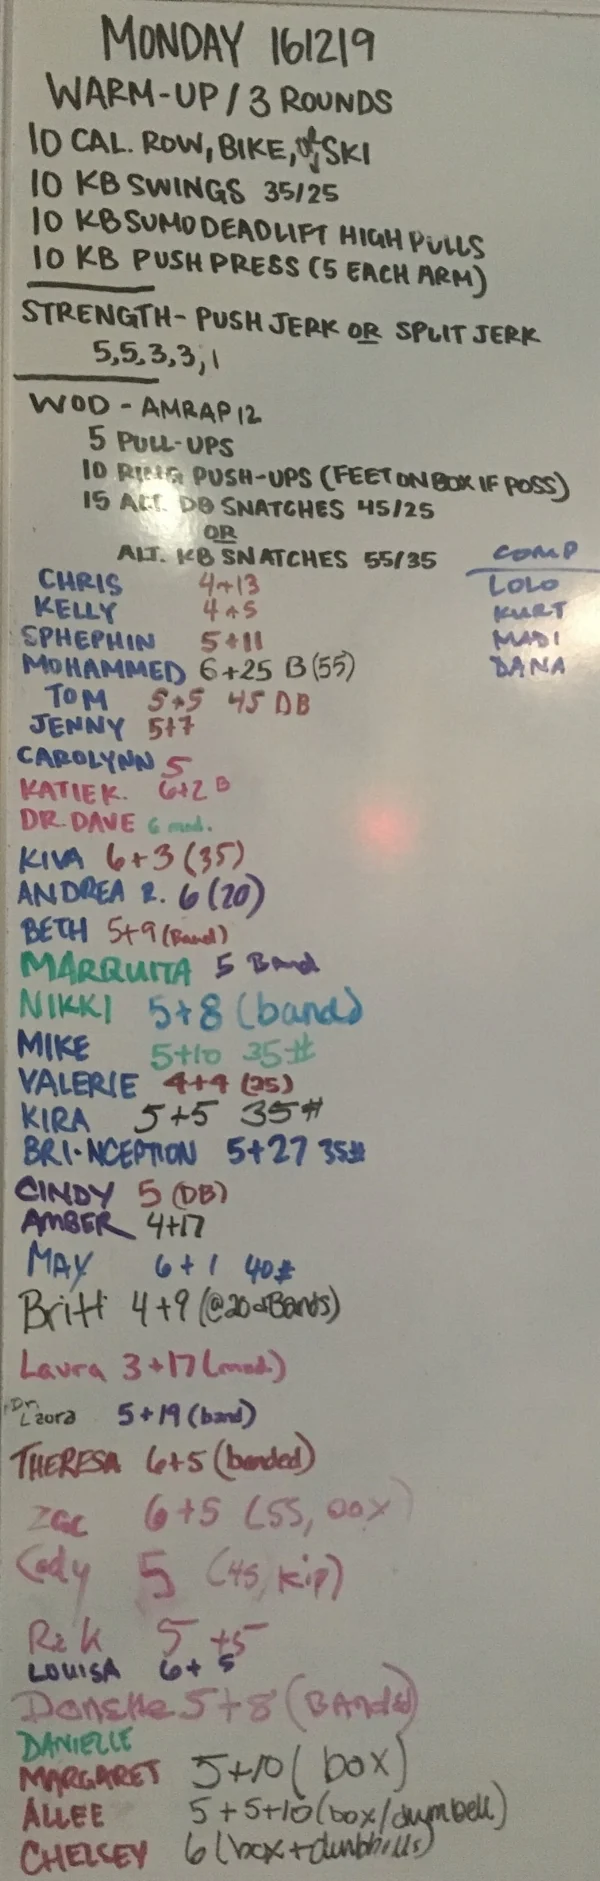 MONDAY 161219
WARM-UP / 3 ROUNDS
10 CAL. ROW, BIKE, or SKI
10 KB SWINGS 35/25
10 KB SUMO DEADLIFT HIGH PULLS
10 KB PUSH PRESS (5 EACH ARM)
STRENGTH- PUSH JERK OR SPLIT JERK
5,5,3,3,1
WOD - AMRAP 12
5 PULL-UPS
10 RING PUSH-UPS (FEET ON BOX IF POSS)
15 ALT. DB SNATCHES 45/25
OR
ALT. KB SNATCHES 55/35
COMP
LOLO
KURT
MADI
DANA
CHRIS 4+13
KELLY 4+5
SPHEPHIN 5+11
MOHAMMED 6+25 B (55)
TOM 5+5 45 DB
JENNY 5+7
CAROLYNN 5
KATIE K. 6+2 B
DR. DAVE 6 mod.
KIVA 6+3 (35)
ANDREA R. 6 (20)
BETH 5+9 (Band)
MARQUITA 5 Band
NIKKI 5+8 (band)
MIKE 5+10 35#
VALERIE 4+4 (25)
KIRA 5+5 35#
BRI-NCEPTION 5+27 35#
CINDY 5 (DB)
AMBER 4+17
MAY 6+1 40#
Britt 4+9 (@20 Bands)
Laura 3+17 (mod.)
Dr. Laura 5+19 (band)
THERESA 6+5 (banded)
Zac 6+5 (55, box)
Cody 5 (45, kip)
Rick 5+5
LOUISA 6+5
Danielle 5+8 (BANded)
DANIELLE
MARGARET 5+10 (box)
ALLEE 5+5+10 (box/dumbell)
CHELSEY 6 (box+dumbbells)